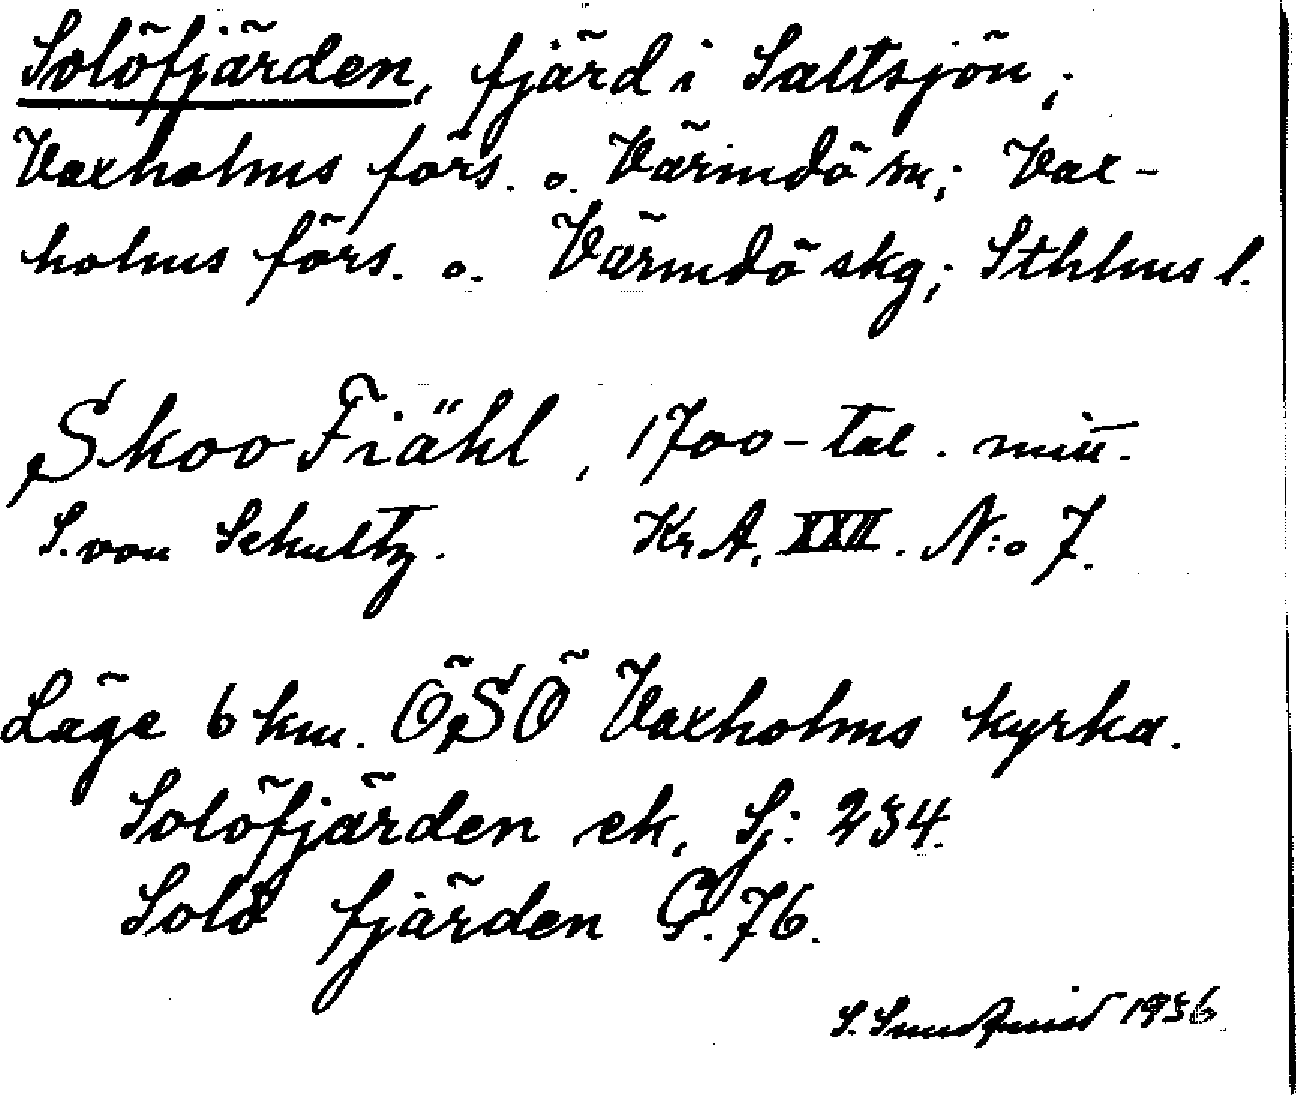 Solöfjärden, fjärd i Saltsjön;
Vaxholms förs. o. Värmdö sn; Vax-
holms förs. o. Värmdö skg; Sthlms l.
Skoo Fiähl, 1700-tal. mitt.
S. von Schultz. Kr.A. XXII. N:o 7.
Läge 6 km. ÖSÖ Vaxholms kyrka.
Solöfjärden ek, Sj: 234.
Solö fjärden G. 76.
S. Sundquist 1936